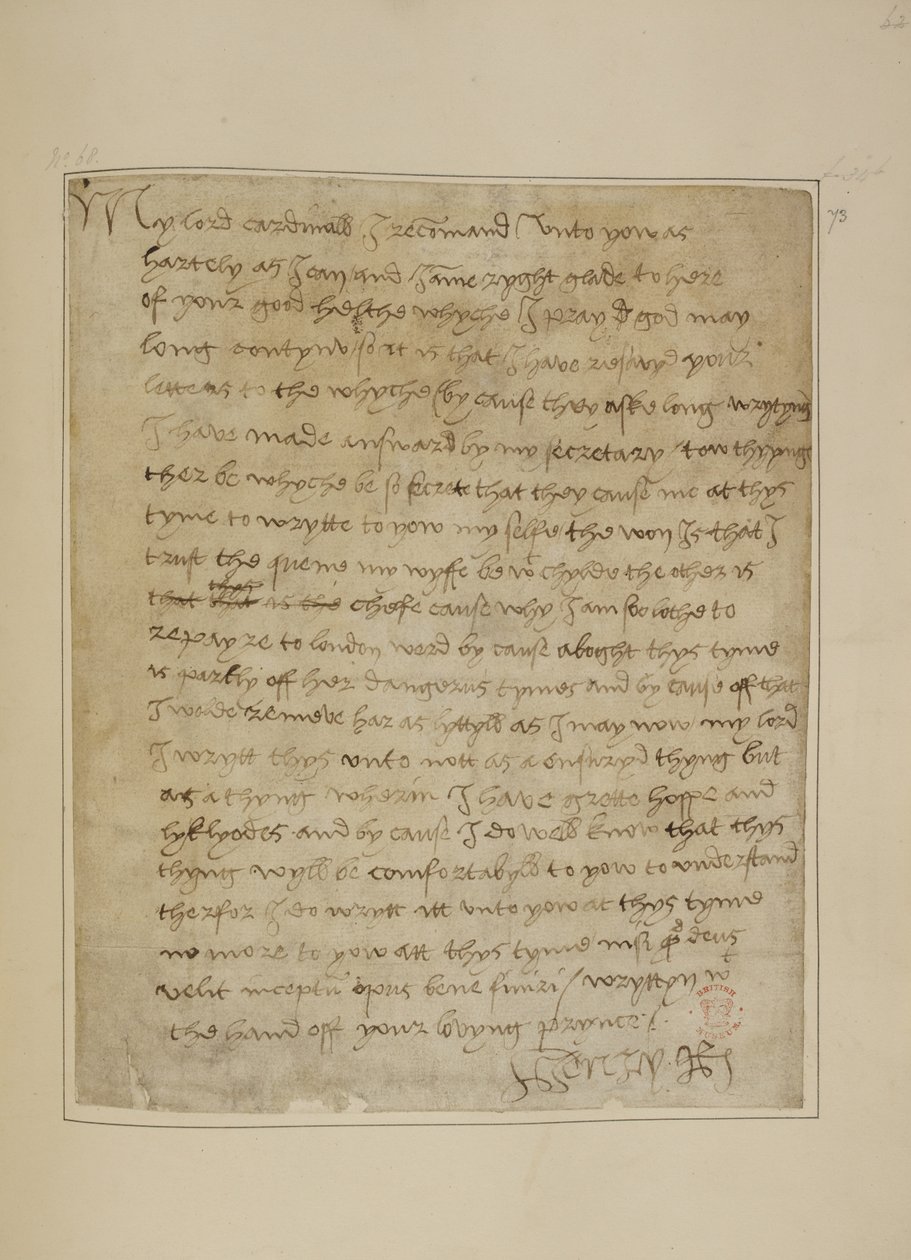 62
No. 68.
73
My lord cardinall I recomand unto yow as
hartely as I can and I ame ryght glade to here
of your good helthe whyche I pray god may
long contynu / so it is that I have resavyd your
letters to the whyche (by cause they aske long wrytyng
I have made answar by my secretary / tow thyngs
ther be whyche be so secrete that they cause me at thys
tyme to wrytte to yow my selfe / the won Is that I
trust the quene my wyffe be wt chylde the other is
that thys is the chefe cause why I am soo lothe to
repayre to london werd by cause aboght thys tyme
is partly off her dangerus tymes and by cause off that
I wolde remeve har as lyttyll as I may now / my lord
I wrytt thys unto nott as a ensuryd thyng but
as a thyng wherin I have grette hoppe and
lyklyodes and by cause I do well know that thys
thyng wyll be comfortabyll to yow to understand
therfor I do wrytt itt unto yow at thys tyme
no more to yow att thys tyme nisi qd deus
velit inceptu opus bene finiri / wryttyn wt
the hand off your lovyng prynce
Henry R
BRITISH MUSEUM